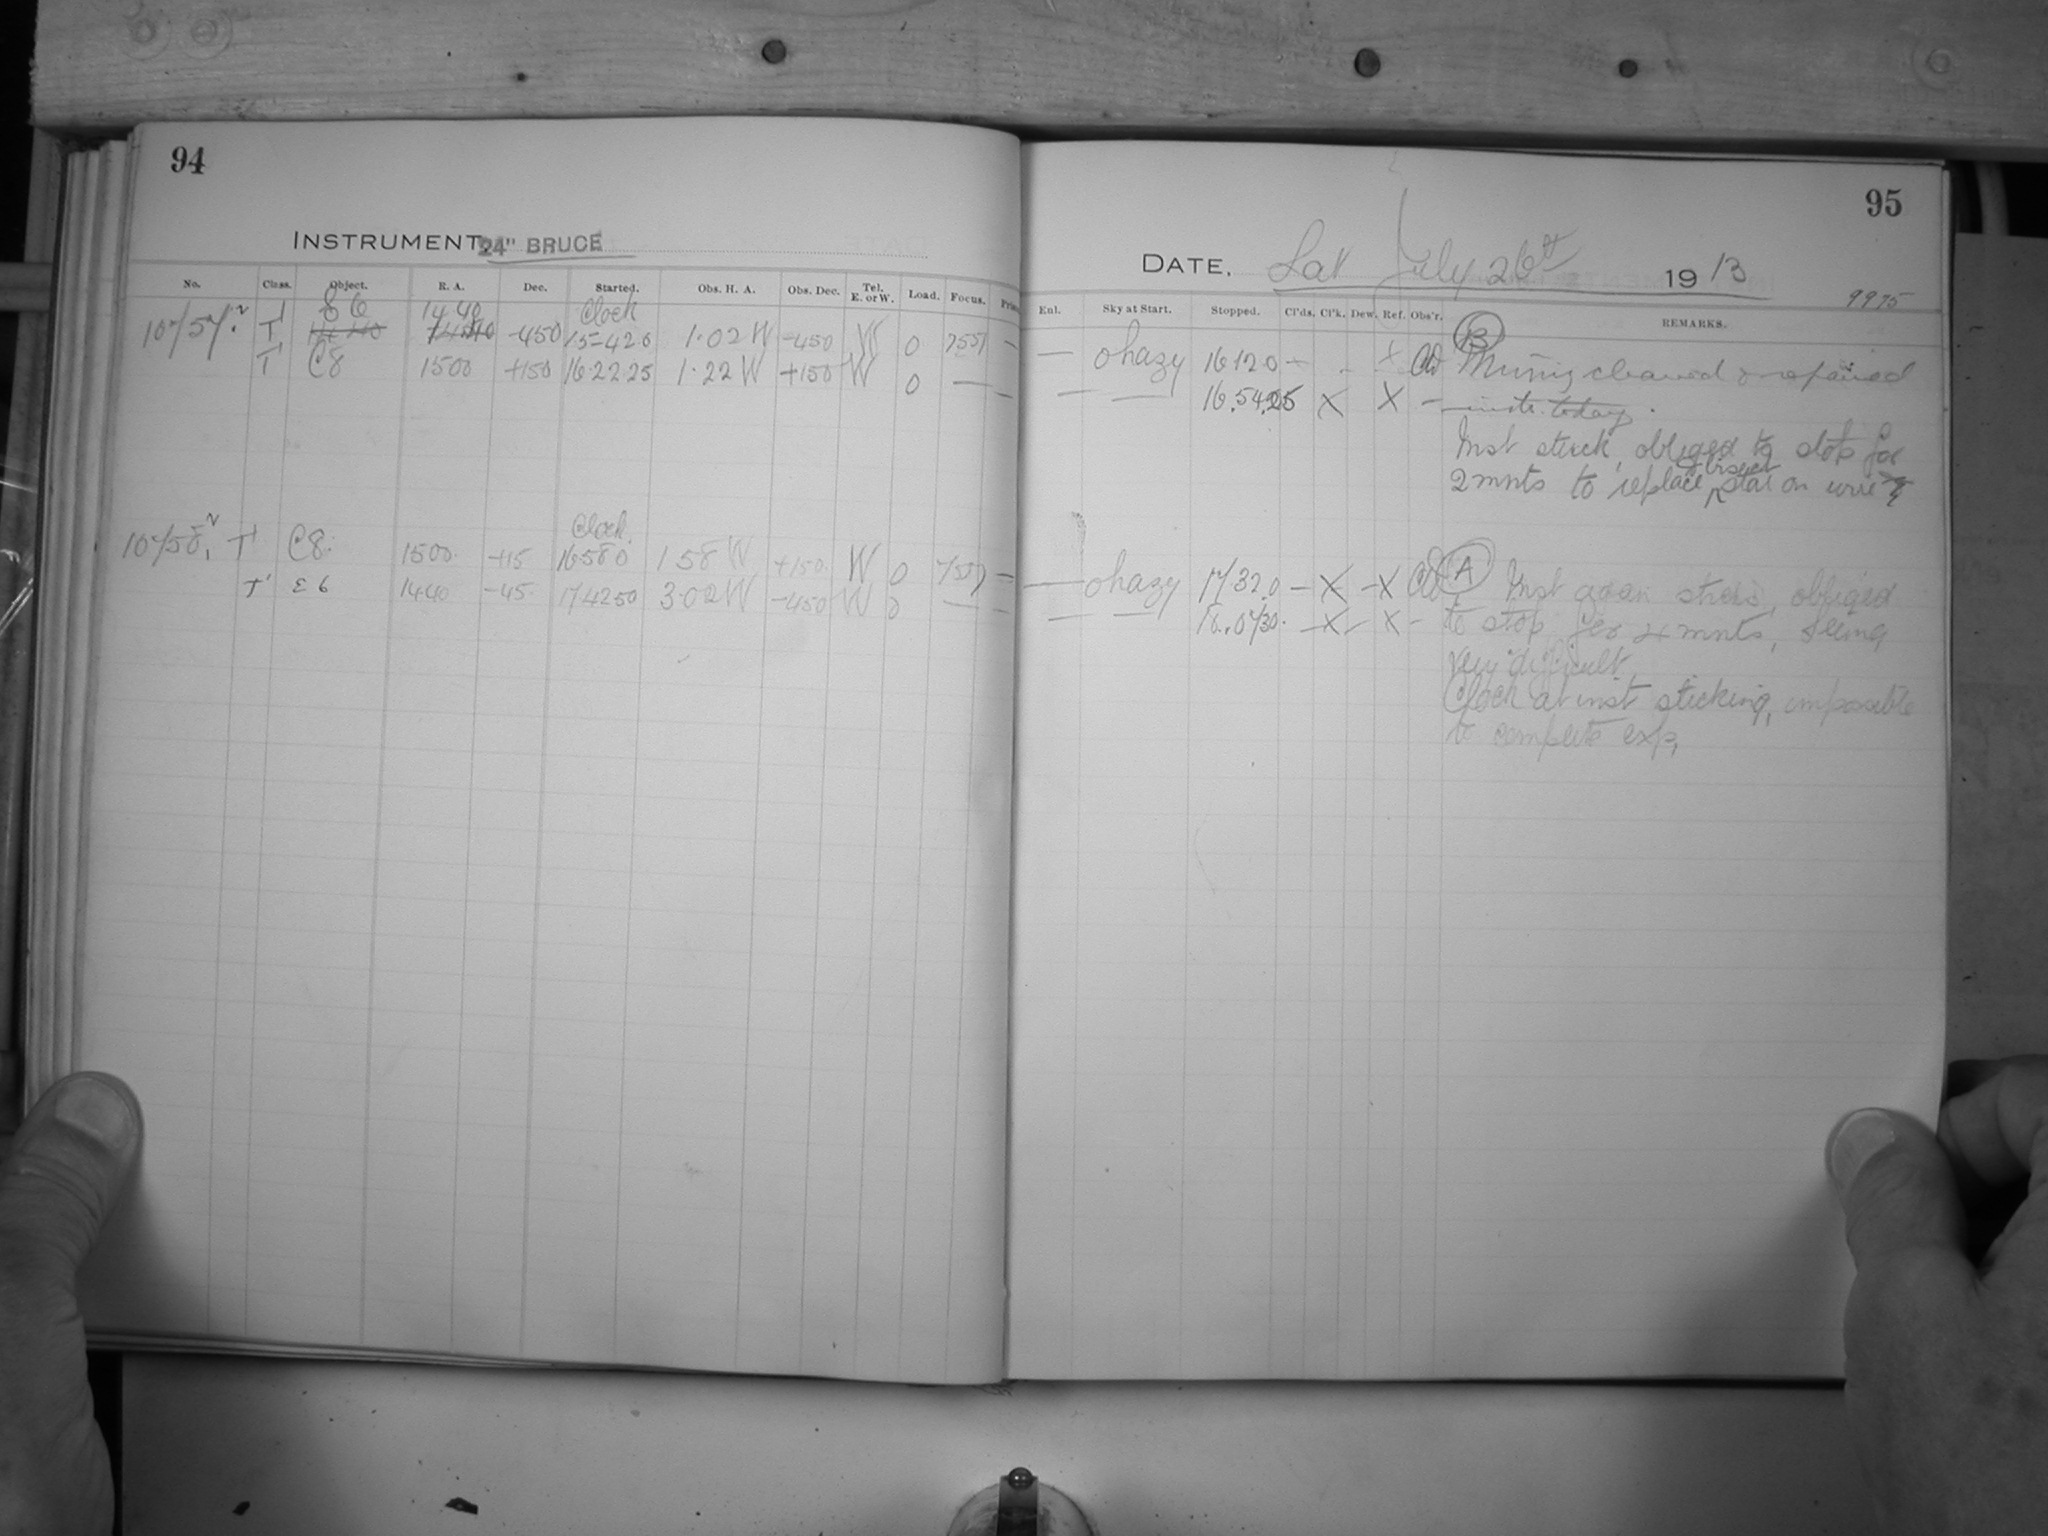 94
INSTRUMENT 24" BRUCE
No. Class. Object. R. A. Dec. Started. Obs. H. A. Obs. Dec. Tel. E. or W. Load. Focus.
Clock
T 14 40 -450 15 42 0 1.02 W -450 W 0 —
T C8 1500 +150 16.22.25 1.22 W +150 W 0 — —
Clock
T C8 1500 +15 16 58 0 1 58 W +150 W 0 —
T E 6 1440 -45 174250 3.02 W -450 W 0 — —
95
DATE. Sat July 26th 1913
9975
Enl. Sky at Start. Stopped. Cl'ds. Cl'k. Dew. Ref. Obs'r. REMARKS.
B
— 0 hazy 16 12 0 — X cleaned & repaired
— — 16.54.25 X X — inst. today.
Inst stuck, obliged to stop for
2 mnts to replace star on wire
A
— 0 hazy 17 32 0 — X — X Inst again stuck, obliged
— — X — X — to stop for 4 mnts, seeing
very difficult
Clock at inst sticking, impossible
to complete exp.